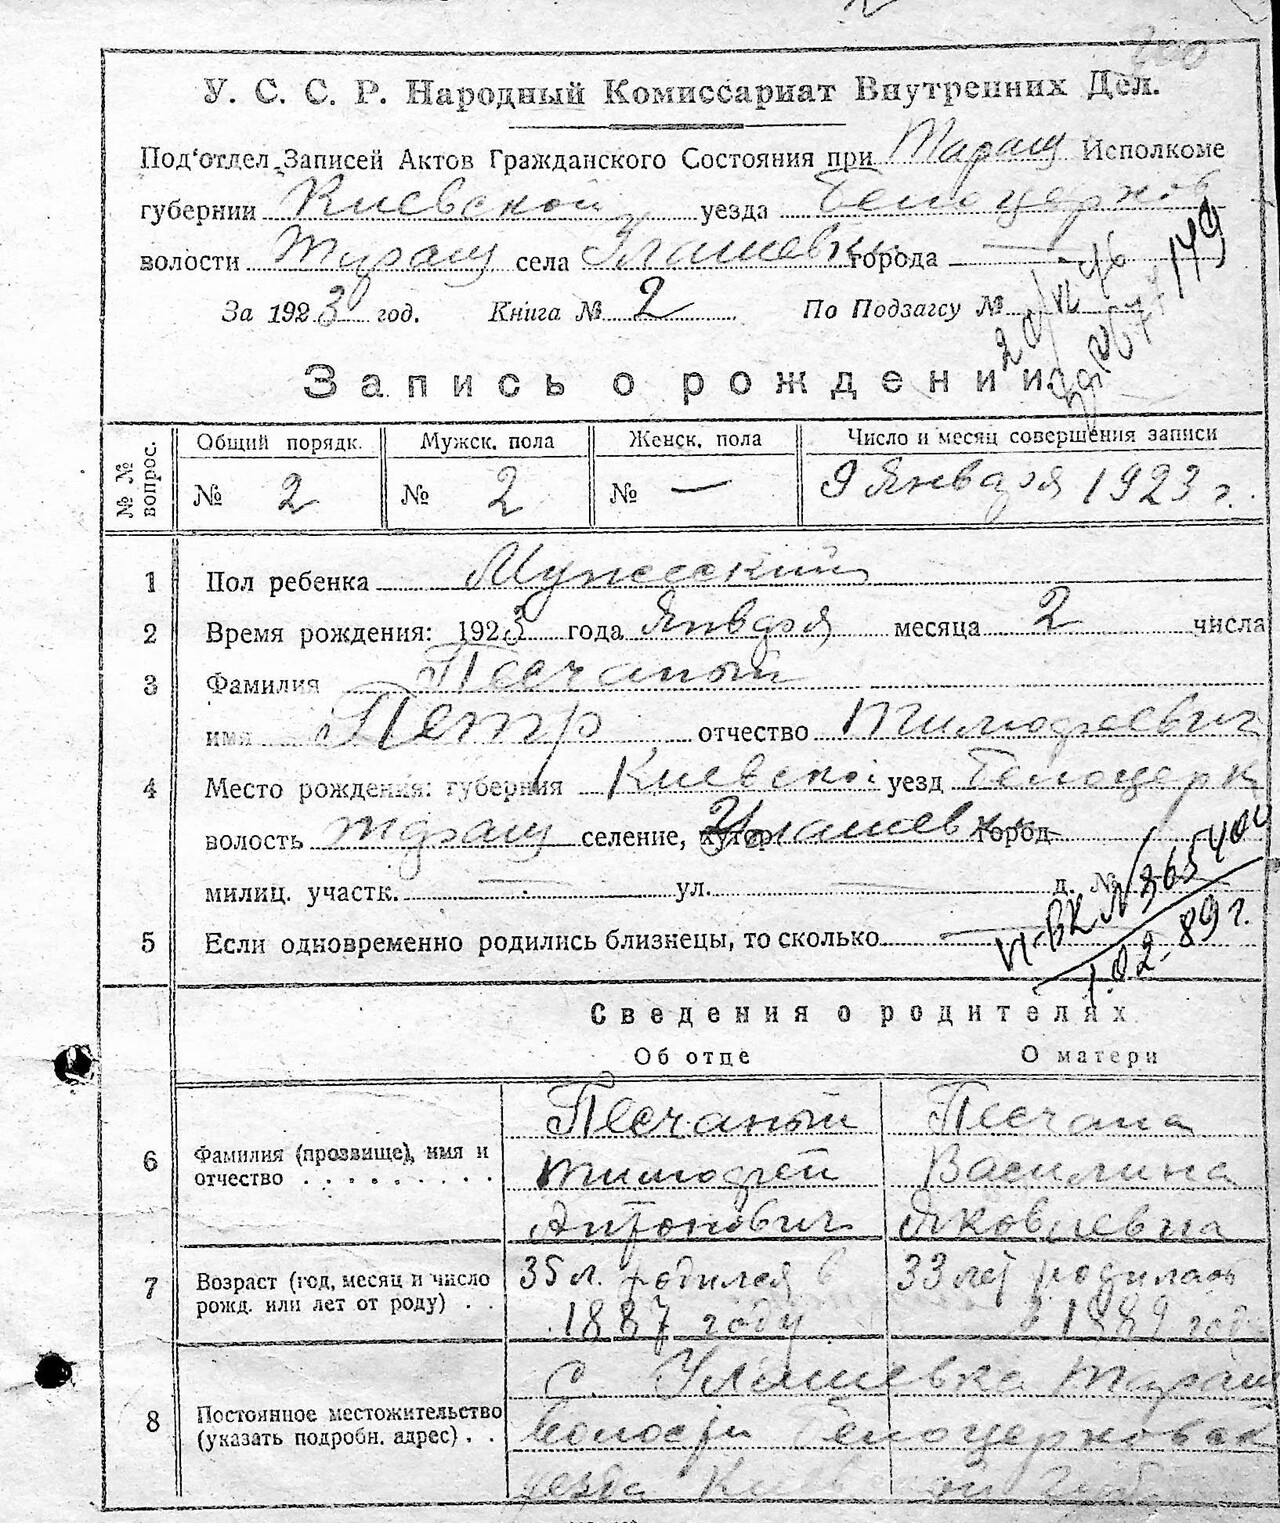 200
У. С. С. Р. Народный Комиссариат Внутренних Дел.
Под'отдел Записей Актов Гражданского Состояния при Таращ Исполкоме
губернии Киевской уезда Белоцерков
волости Таращ села Улашевки города —
За 1923 год. Книга № 2 По Подзагсу №
Запись о рождении
№ № вопрос. Общий порядк. Мужск. пола Женск. пола Число и месяц совершения записи
№ 2 № 2 № — 9 Января 1923 г.
1 Пол ребенка Мужеский
2 Время рождения: 1923 года Января месяца 2 числа
3 Фамилия Песчаный
имя Петр отчество Тимофеевич
4 Место рождения: губерния Киевской уезд Белоцерк
волость Таращ селение, хутор Улашевка город
милиц. участк. — ул. — д. №
VI-БК № 365404
1.02-89 г.
5 Если одновременно родились близнецы, то сколько —
Сведения о родителях
Об отце О матери
6 Фамилия (прозвище), имя и отчество Песчаный Песчана
Тимофей Василина
Антонович Яковлевна
7 Возраст (год, месяц и число рожд. или лет от роду) 35 л. родился в 33 лет родилась
1887 году в 1889 году
8 Постоянное местожительство (указать подробн. адрес) с. Улашевка Таращ
волости Белоцерковск
уезда Киевской губ